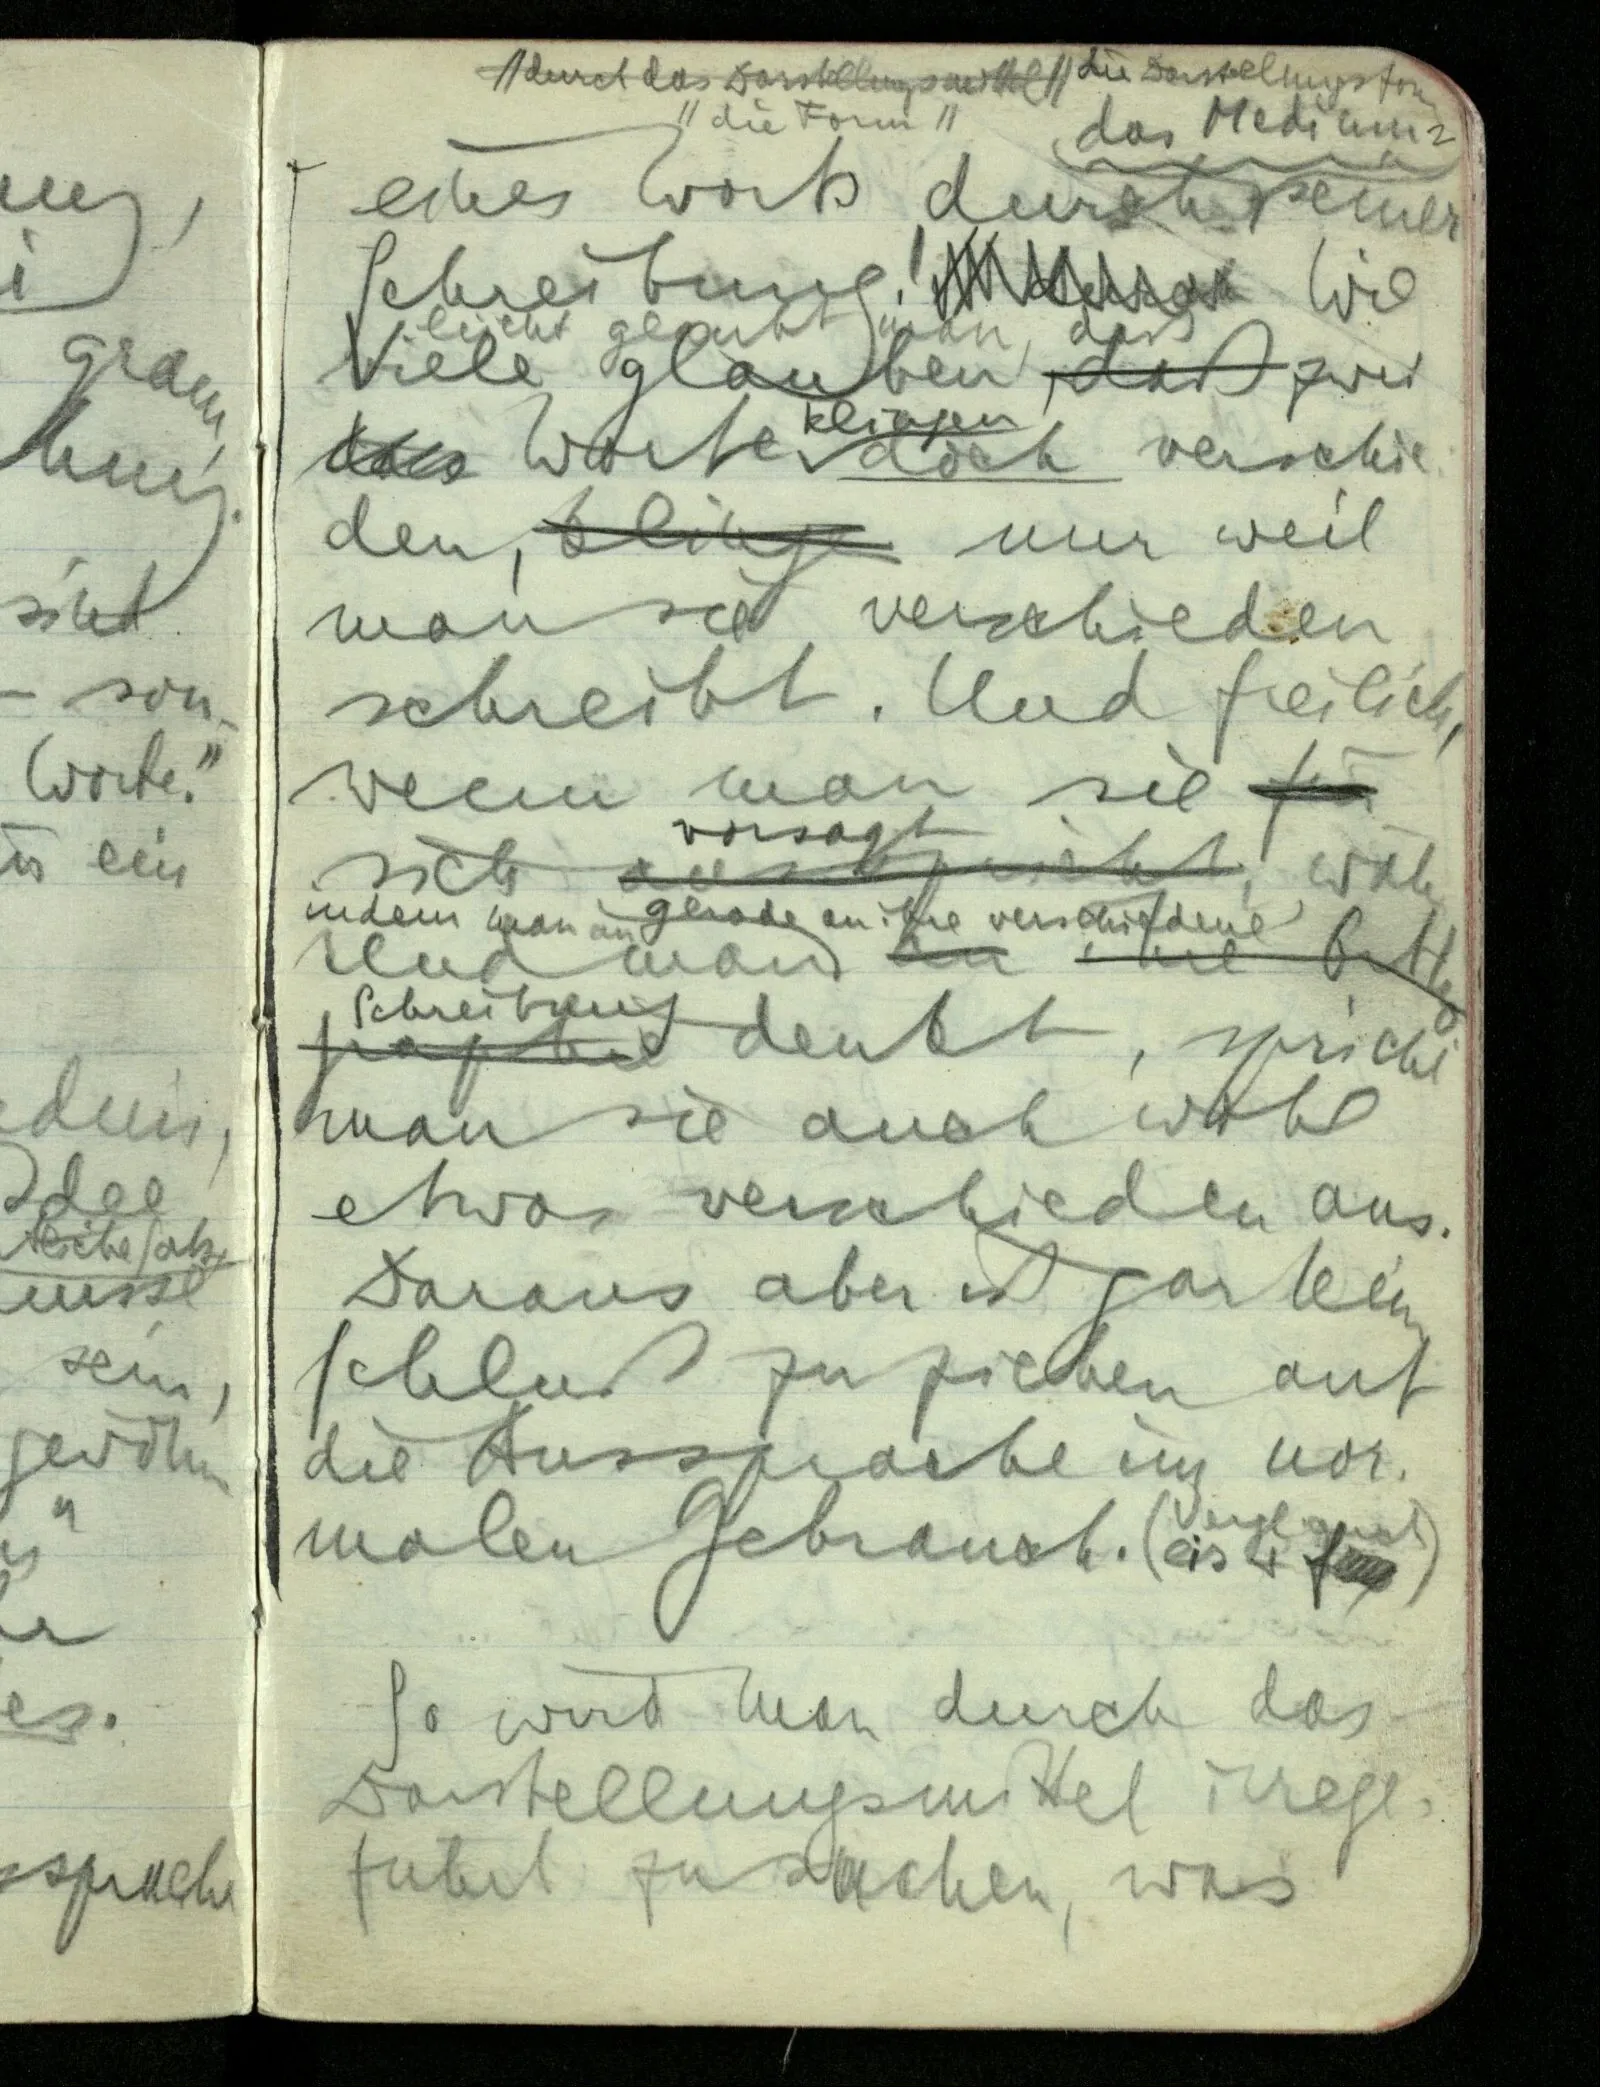 ung,
i
gram
hung.
sind
– son-
Worte."
ein
dnis,
Idee
müsse
sein,
gewöhn
es.
ssprache
//durch das Darstellungsmittel// die Darstellungsform
"die Form"
das Medium
eines Worts durch seiner
Schreibung! Wie
leicht glaubt man, daß
Viele glauben, daß zwei
klingen
Worte doch verschie-
den, klinge nur weil
man sie verschieden
schreibt. Und freilich,
wenn man sie für
vorsagt
sich ausspricht, wäh
indem man an gerade an ihre verschiedene
rend man an ihre Ortho
Schreibung
graphie denkt, spricht
man sie auch wohl
etwas verschieden aus.
Daraus aber ist gar kein
Schluß zu ziehen auf
die Aussprache im nor-
malen Gebrauch. (
So wird man durch das
Darstellungsmittel irrege-
führt zu suchen, was